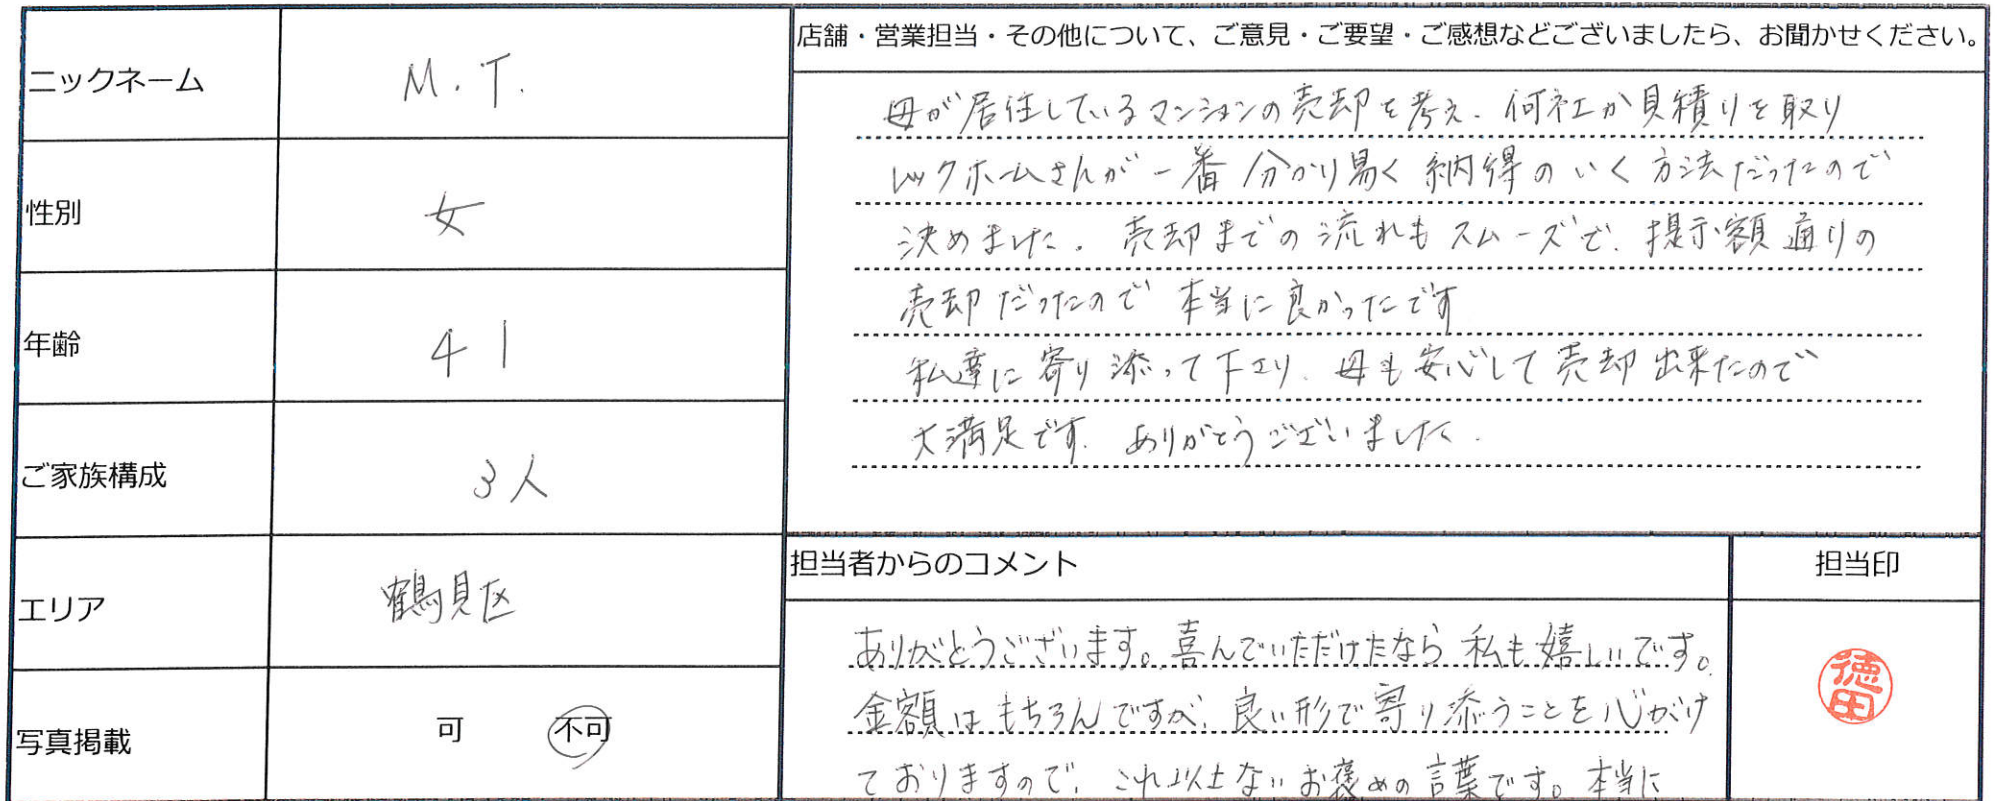 ニックネーム M.T.
性別 女
年齢 41
ご家族構成 3人
エリア 鶴見区
写真掲載 可 不可
店舗・営業担当・その他について、ご意見・ご要望・ご感想などございましたら、お聞かせください。
母が居住しているマンションの売却を考え、何社か見積りを取り
レックホームさんが一番分かり易く納得のいく方法だったので
決めました。売却までの流れもスムーズで、提示額通りの
売却だったので本当に良かったです
私達に寄り添って下さり、母も安心して売却出来たので
大満足です。ありがとうございました。
担当者からのコメント
ありがとうございます。喜んでいただけたなら私も嬉しいです。
金額はもちろんですが、良い形で寄り添うことを心がけ
ておりますので、これ以上ないお褒めの言葉です。本当に
担当印
徳田